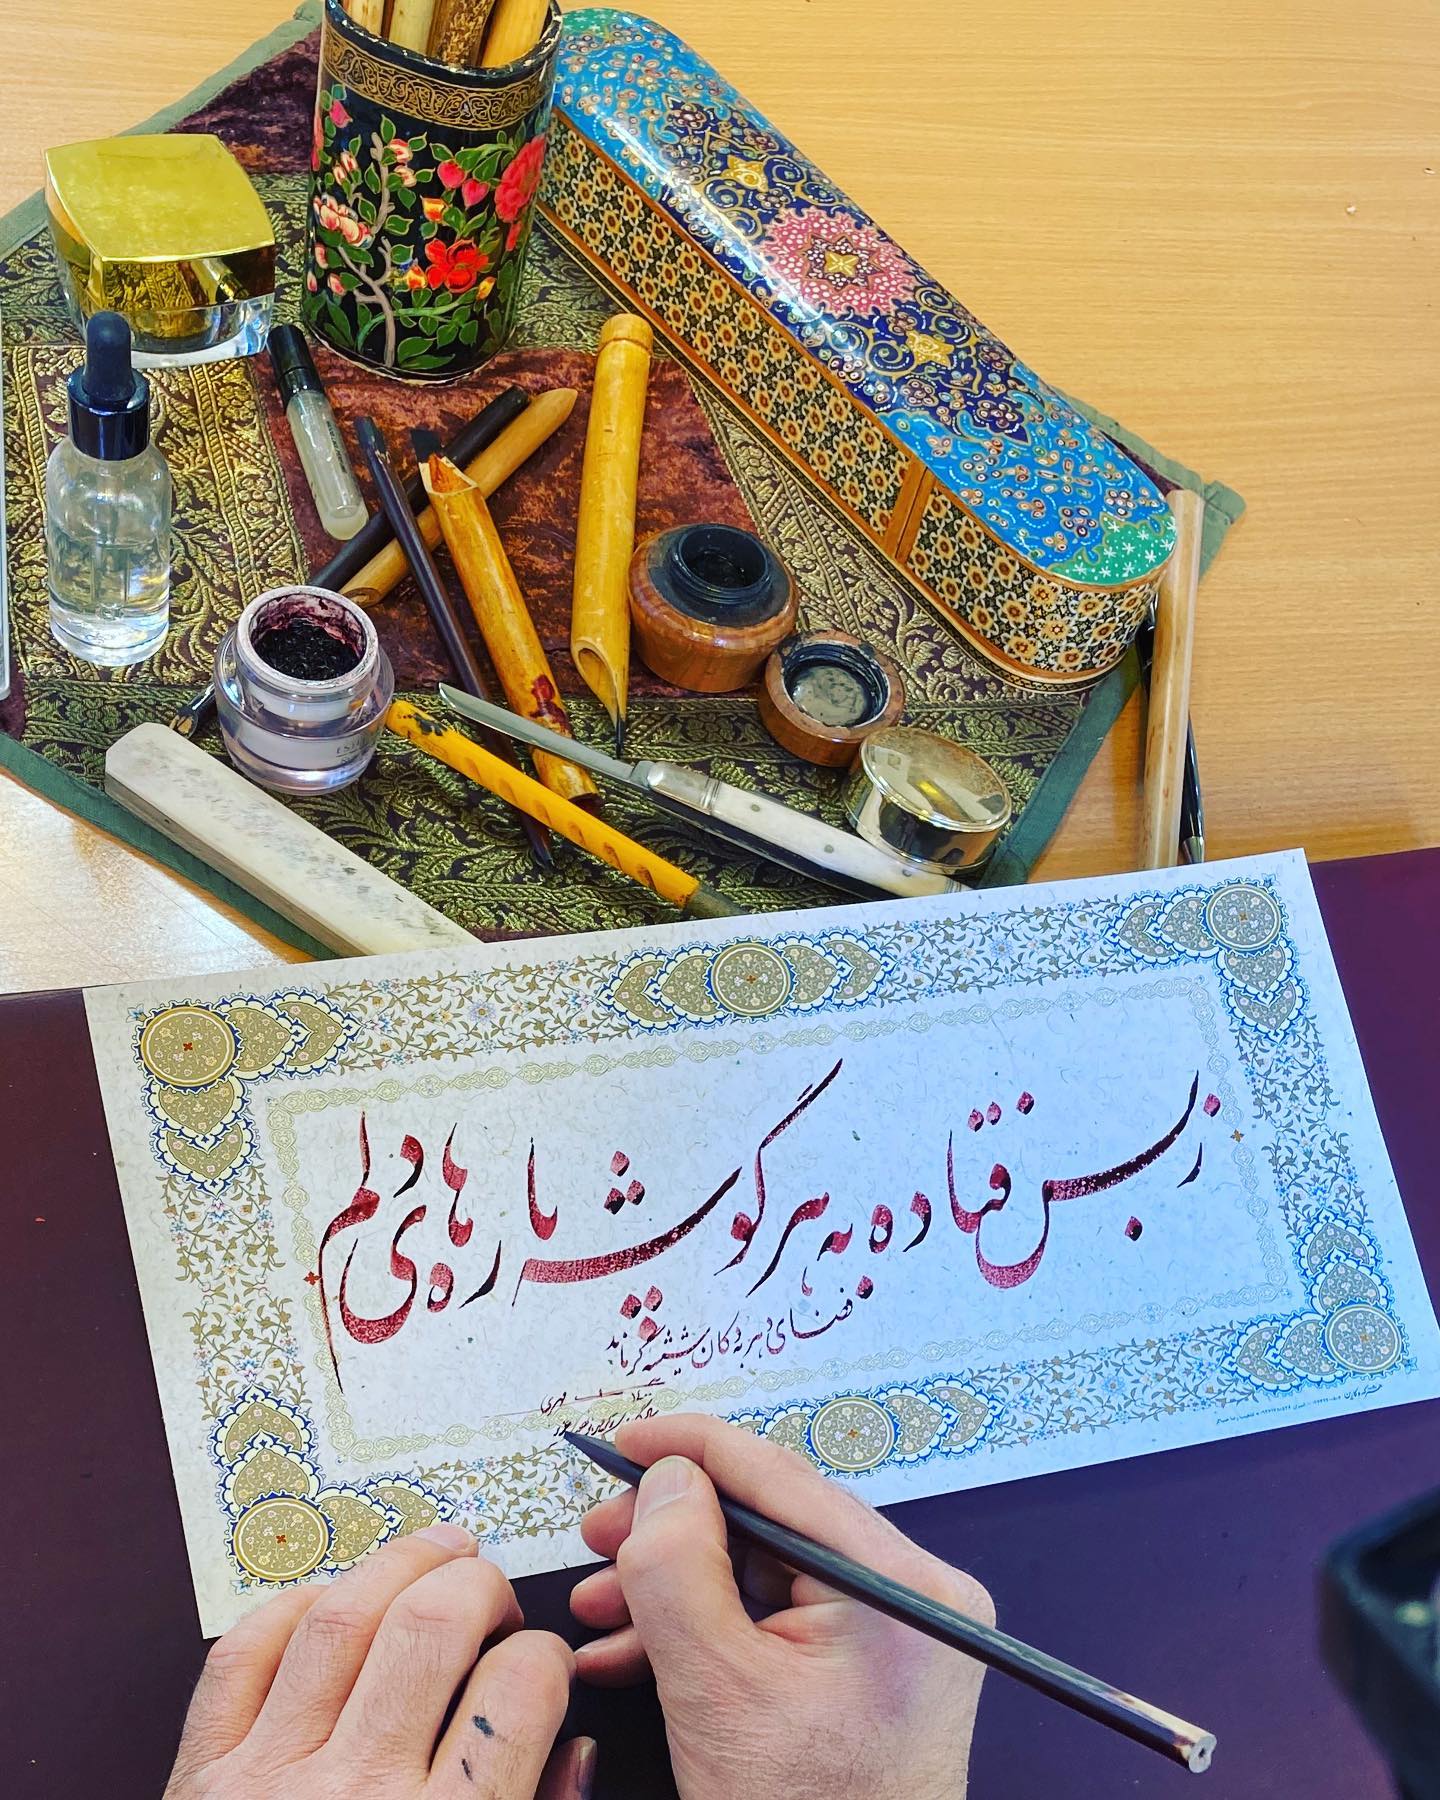 ز بس فتاده به هر گوشه پاره‌های دلم
فضای دهر به دکان شیشه گر ماند